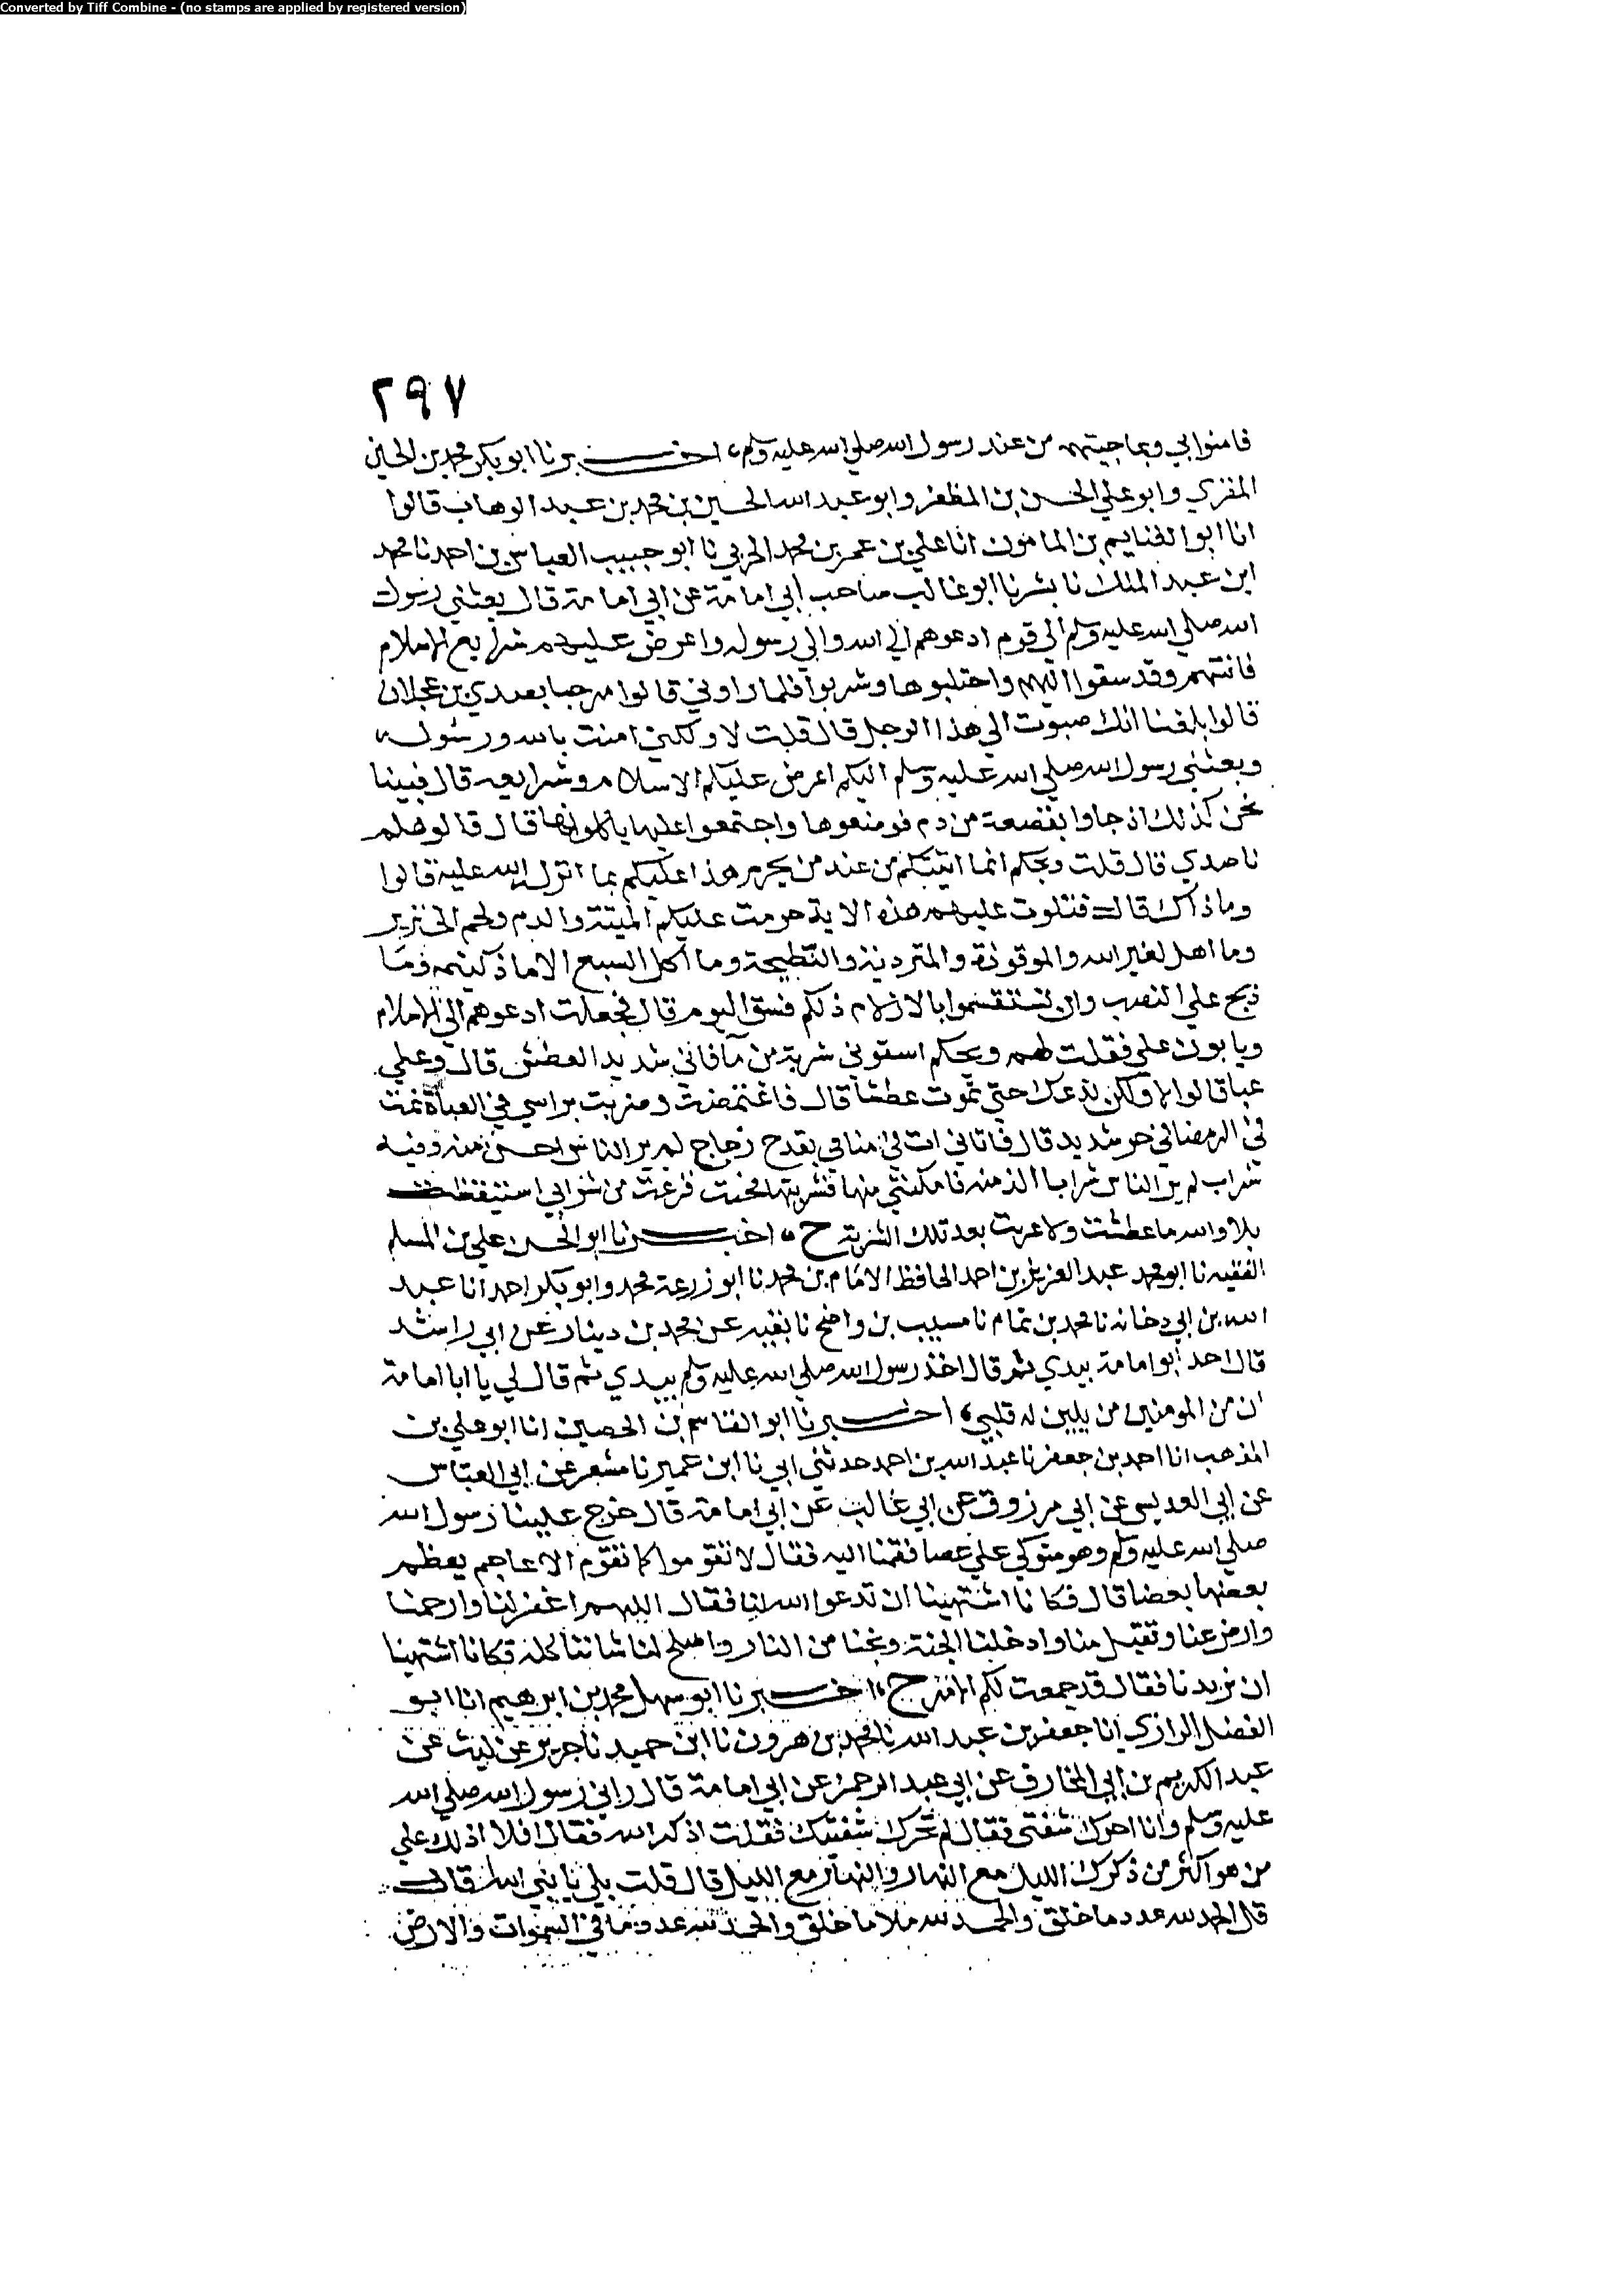 Converted by Tiff Combine - (no stamps are applied by registered version)
٢٩٧
فامنوا بي وبما جيتهم من عند رسول الله صلي الله عليه وسلم، اخبرنا ابو بكر محمد بن الحسين
المقري وابو علي الحسن بن المظفر وابو عبد الله الحسين بن محمد بن عبد الوهاب قالوا
انا ابو الغنايم بن المامون انا علي بن عمر بن محمد الحربي نا ابو حبيب العباس بن احمد نا محمد
ابن عبد الملك نا بشر نا ابو غالب صاحب ابي امامة عن ابي امامة قال بعثني رسول
الله صلي الله عليه وسلم الي قوم ادعوهم الي الله والي رسوله واعرض عليهم شرايع الاسلام
فاتيتهم وقد سقوا ابلهم واحتلبوها وشربوا فلما راوني قالوا مرحبا بصدي بن عجلان
قالوا بلغنا انك صبوت الي هذا الرجل قال قلت لا ولكني امنت بالله ورسوله
وبعثني رسول الله صلي الله عليه وسلم اليكم اعرض عليكم الاسلام وشرايعه قال فبينا
نحن كذلك اذ جاوا بقصعة من دم فوضعوها واجتمعوا عليها ياكلوانها قال قالو هلم
ناصدي قال قلت ويحكم انما اتيتكم من عند من يحرم هذا عليكم بما انزل الله عليه قالوا
وما ذاك قال فتلوت عليهم هذه الاية حرمت عليكم الميتة والدم ولحم الخنزير
وما اهل لغير الله والموقوذة والمتردية والنطيحة وما اكل السبع الا ما ذكيتم وما
ذبح علي النصب وان تستقسموا بالازلام ذلكم فسق اليوم قال فجعلت ادعوهم الي الاسلام
ويابون علي فقلت لهم ويحكم اسقوني شربة من ما فاني شديد العطش قال وعلي
عبا قالوا لا ولكن ندعك حتي تموت عطشا قال فاغتممت وضربت براسي في العباة ونمت
في الرمضا في حر شديد قال فاتاني ات في منامي بقدح زجاج لم ير الناس احسن منه وفيه
شراب لم ير الناس شرابا الذ منه فامكنني منها فشربتها فحيث فرغت من شرابي استيقظت
بلا والله ما عطشت ولا عريت بعد تلك الشربة ح اخبرنا ابو الحسن علي بن المسلم
الفقيه نا ابو محمد عبد العزيز بن احمد الحافظ الامام بن محمد نا ابو زرعة محمد وابو بكر احمد انا عبد
الله بن ابي دجانه نا محمد بن تمام نا مسيب بن واضح نا بقيه عن محمد بن دينار عن ابي راشد
قال اخذ ابو امامة بيدي ثم قال اخذ رسول الله صلي الله عليه وسلم بيدي ثم قال لي يا ابا امامة
ان من المومنين من يلين له قلبي، اخبرنا ابو القاسم بن الحصين انا ابو علي بن
المذهب انا احمد بن جعفر نا عبد الله بن احمد حدثني ابي نا ابن نمير نا مسعر عن ابي العباس
عن ابي العدبس عن ابي مرزوق عن ابي غالب عن ابي امامة قال خرج علينا رسول الله
صلي الله عليه وسلم وهو متوكي علي عصا فقمنا اليه فقال لا تقوموا كما تقوم الاعاجم يعظم
بعضها بعضا قال فكانا اشتهينا ان تدعوا الله لنا فقال اللهم اغفر لنا وارحمنا
وارض عنا وتقبل منا وادخلنا الجنة ونجنا من النار واصلح لنا شاننا كله فكانا اشتهينا
ان نزيدنا فقال قد جمعت لكم الامر ح، اخبرنا ابو سهل محمد بن ابرهيم انا ابو
الفضل الرازي انا جعفر بن عبد الله نا محمد بن هرون نا ابن حميد نا جرير عن ليث عن
عبد الكريم بن ابي المخارق عن ابي عبد الرحمن عن ابي امامة قال راني رسول الله صلي الله
عليه وسلم وانا احرك شفتي فقال لم تحرك شفتيك فقلت اذكر الله فقال افلا ادلك علي
من هو اكثر من ذكرك الليل مع النهار والنهار مع الليل قال قلت بلي يا نبي الله قال
قل الحمد لله عدد ما خلق والحمد لله ملا ما خلق والحمد لله عدد ما في السموات والارض